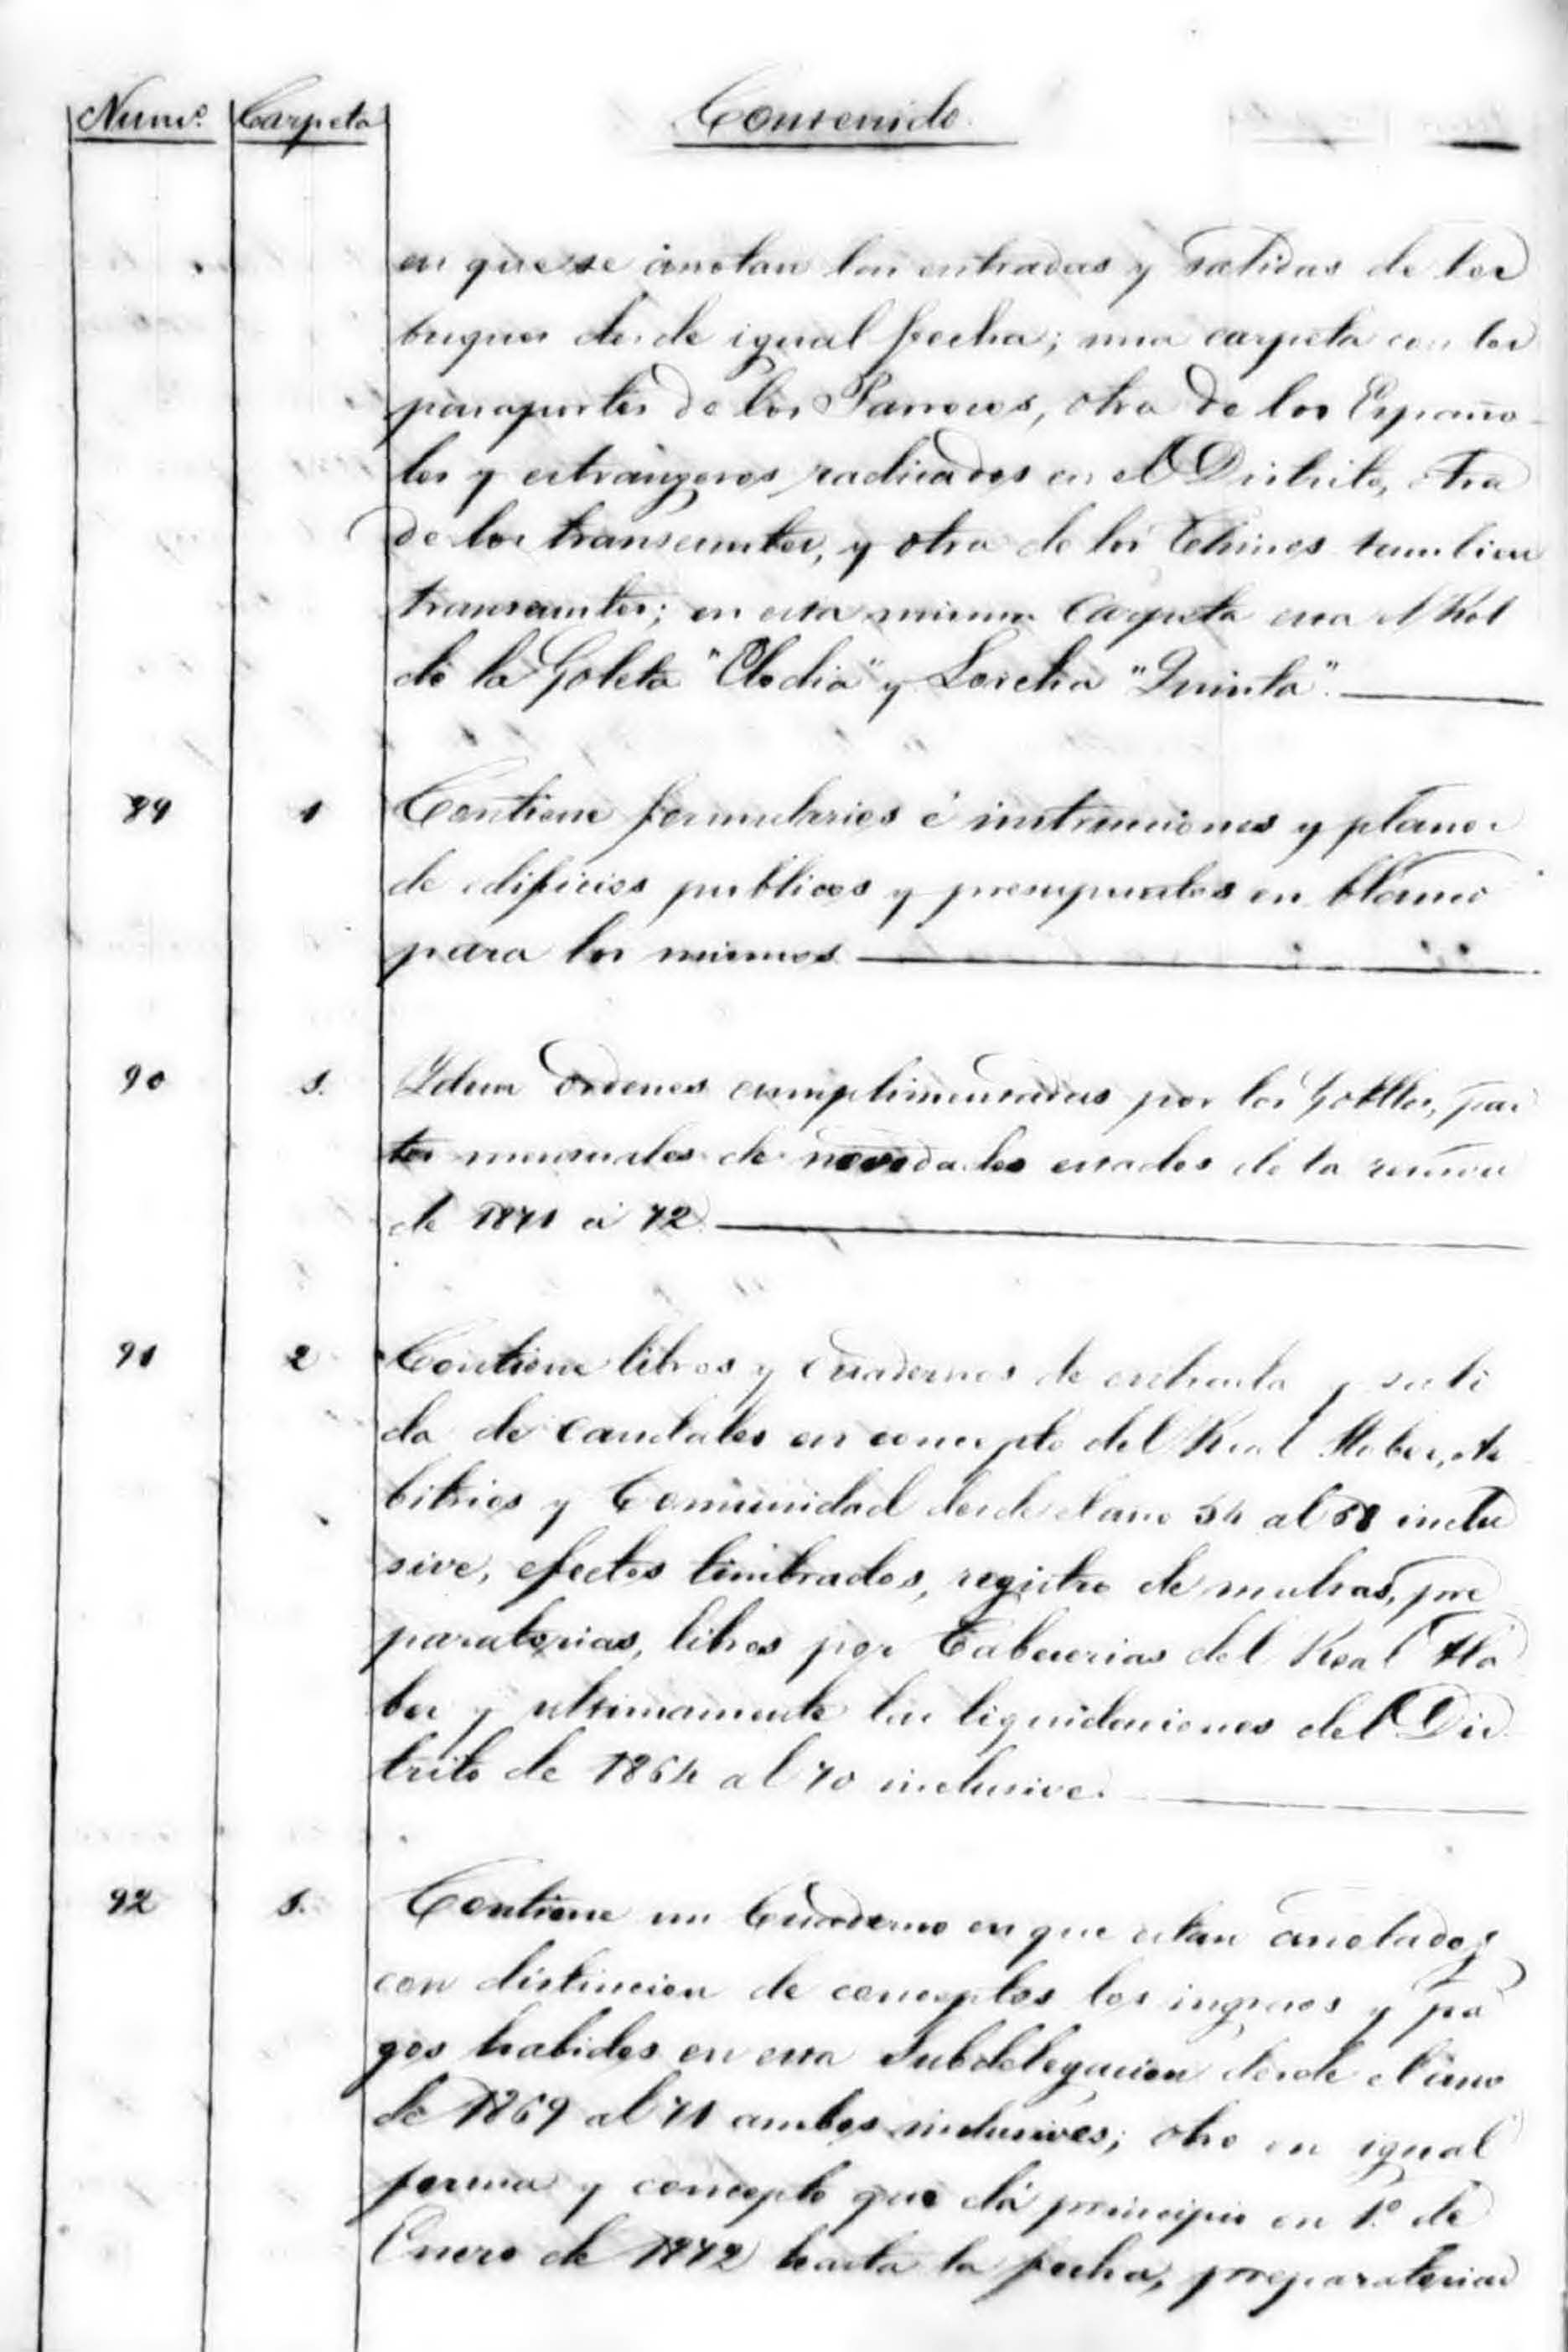 Num.º Carpeta Contenido
en que se anotan las entradas y salidas de los
buques desde igual fecha; una carpeta con los
pasaportes de los Parrocos, otra de los Españo-
les y estrangeros radicados en el Distrito, otra
de los transeuntes, y otra de los Chinos tambien
transeuntes; en esta misma Carpeta esta el Rol
de la Goleta "Clodia" y Lorcha "Quinta".
89 1 Contiene formularios é instrucciones y planos
de edificios publicos y presupuestos en blanco
para los mismos
90 1. Idem ordenes cumplimentadas por los Gobllos, par
tes mensuales de novedades estados de la
de 1871 á 72.
91 2 Contiene libros y cuadernos de entrada y sali
da de caudales en concepto del Real Haber, Ar
bitrios y Comunidad desde el año 54 al 68 inclu
sive, efectos timbrados, registro de multas, pre
paratorias, libros por Cabecerias del Real Ha
ber y ultimamente las liquidaciones del Dis
trito de 1864 al 70 inclusive.
92 1. Contiene un Cuaderno en que estan anotados
con distincion de conceptos los ingresos y pa
gos habidos en esta Subdelegacion desde el año
de 1869 al 71 ambos inclusives; otro en igual
forma y concepto que dá principio en 1.º de
Enero de 1872 hasta la fecha, preparatorias